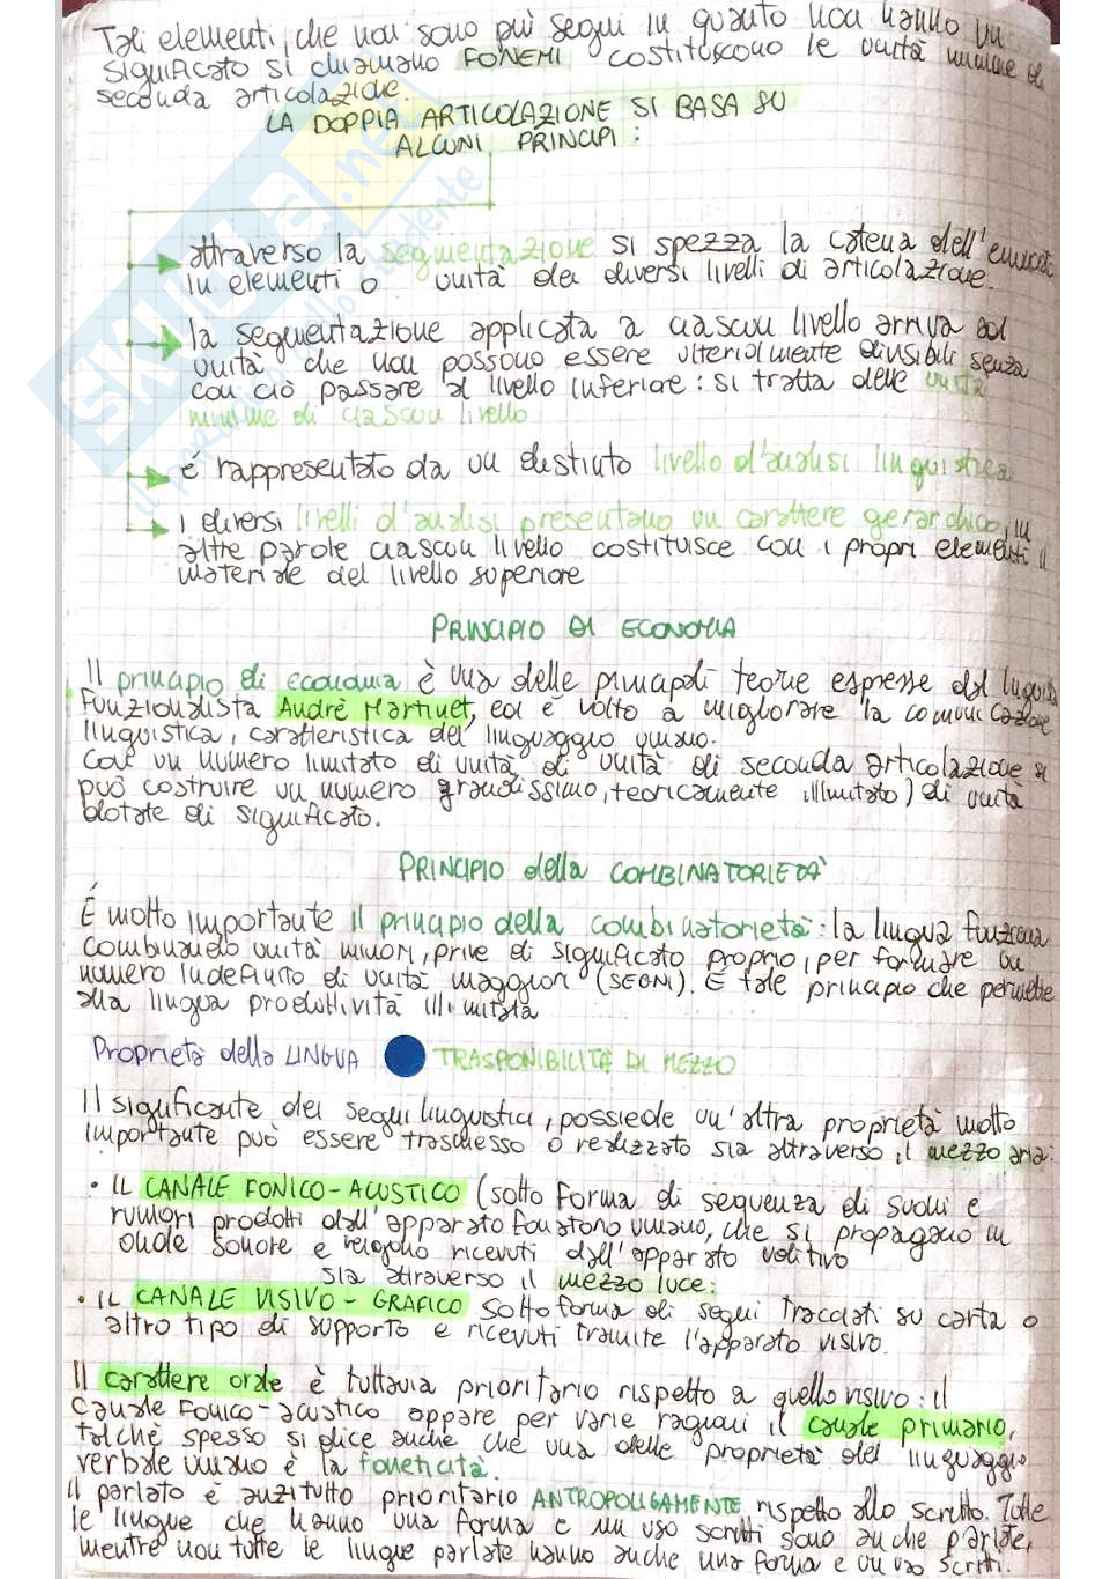 Tali elementi, che non sono più segni in quanto non hanno un
significato si chiamano FONEMI costituiscono le unità minime di
seconda articolazione.
LA DOPPIA ARTICOLAZIONE SI BASA SU
ALCUNI PRINCIPI:
attraverso la segmentazione si spezza la catena dell'enunciato
in elementi o unità dei diversi livelli di articolazione.
la segmentazione applicata a ciascun livello arriva ad
unità che non possono essere ulteriolmente divisibili senza
con ciò passare al livello inferiore: si tratta delle unità
minime di ciascun livello
é rappresentato da un distinto livello d'analisi linguistica
i diversi livelli d'analisi presentano un carattere gerarchico, in
altre parole ciascun livello costituisce con i propri elementi il
materiale del livello superiore
PRINCIPIO DI ECONOMIA
Il principio di economia è una delle principali teorie espresse dal linguista
funzionalista Andrè Martinet, ed è volto a migliorare la comunicazione
linguistica, caratteristica del linguaggio umano.
Con un numero limitato di unità di unità di seconda articolazione si
può costruire un numero grandissimo, teoricamente illimitato) di unità
dotate di significato.
PRINCIPIO della COMBINATORIETÀ
É molto importante il principio della combinatorietà: la lingua funziona
combinando unità minori, prive di significato proprio, per formare un
numero indefinito di unità maggiori (SEGNI). É tale principio che permette
alla lingua produttività illimitata
Proprietà della LINGUA TRASPONIBILITÀ DI MEZZO
Il significante dei segni linguistici, possiede un'altra proprietà molto
importante può essere trasmesso o realizzato sia attraverso il mezzo aria:
• IL CANALE FONICO-ACUSTICO (sotto forma di sequenza di suoni e
rumori prodotti dall'apparato fonatorio umano, che si propagano in
onde sonore e vengono ricevuti dall'apparato uditivo
sia attraverso il mezzo luce:
• IL CANALE VISIVO-GRAFICO sotto forma di segni tracciati su carta o
altro tipo di supporto e ricevuti tramite l'apparato visivo.
Il carattere orale è tuttavia prioritario rispetto a quello visivo: il
canale fonico-acustico appare per varie ragioni il canale primario,
talchè spesso si dice anche che una delle proprietà del linguaggio
verbale umano è la foneticità.
Il parlato è anzitutto prioritario ANTROPOLIGAMENTE rispetto allo scritto. Tutte
le lingue che hanno una forma e un uso scritti sono anche parlate,
mentre non tutte le lingue parlate hanno anche una forma e un uso scritti.